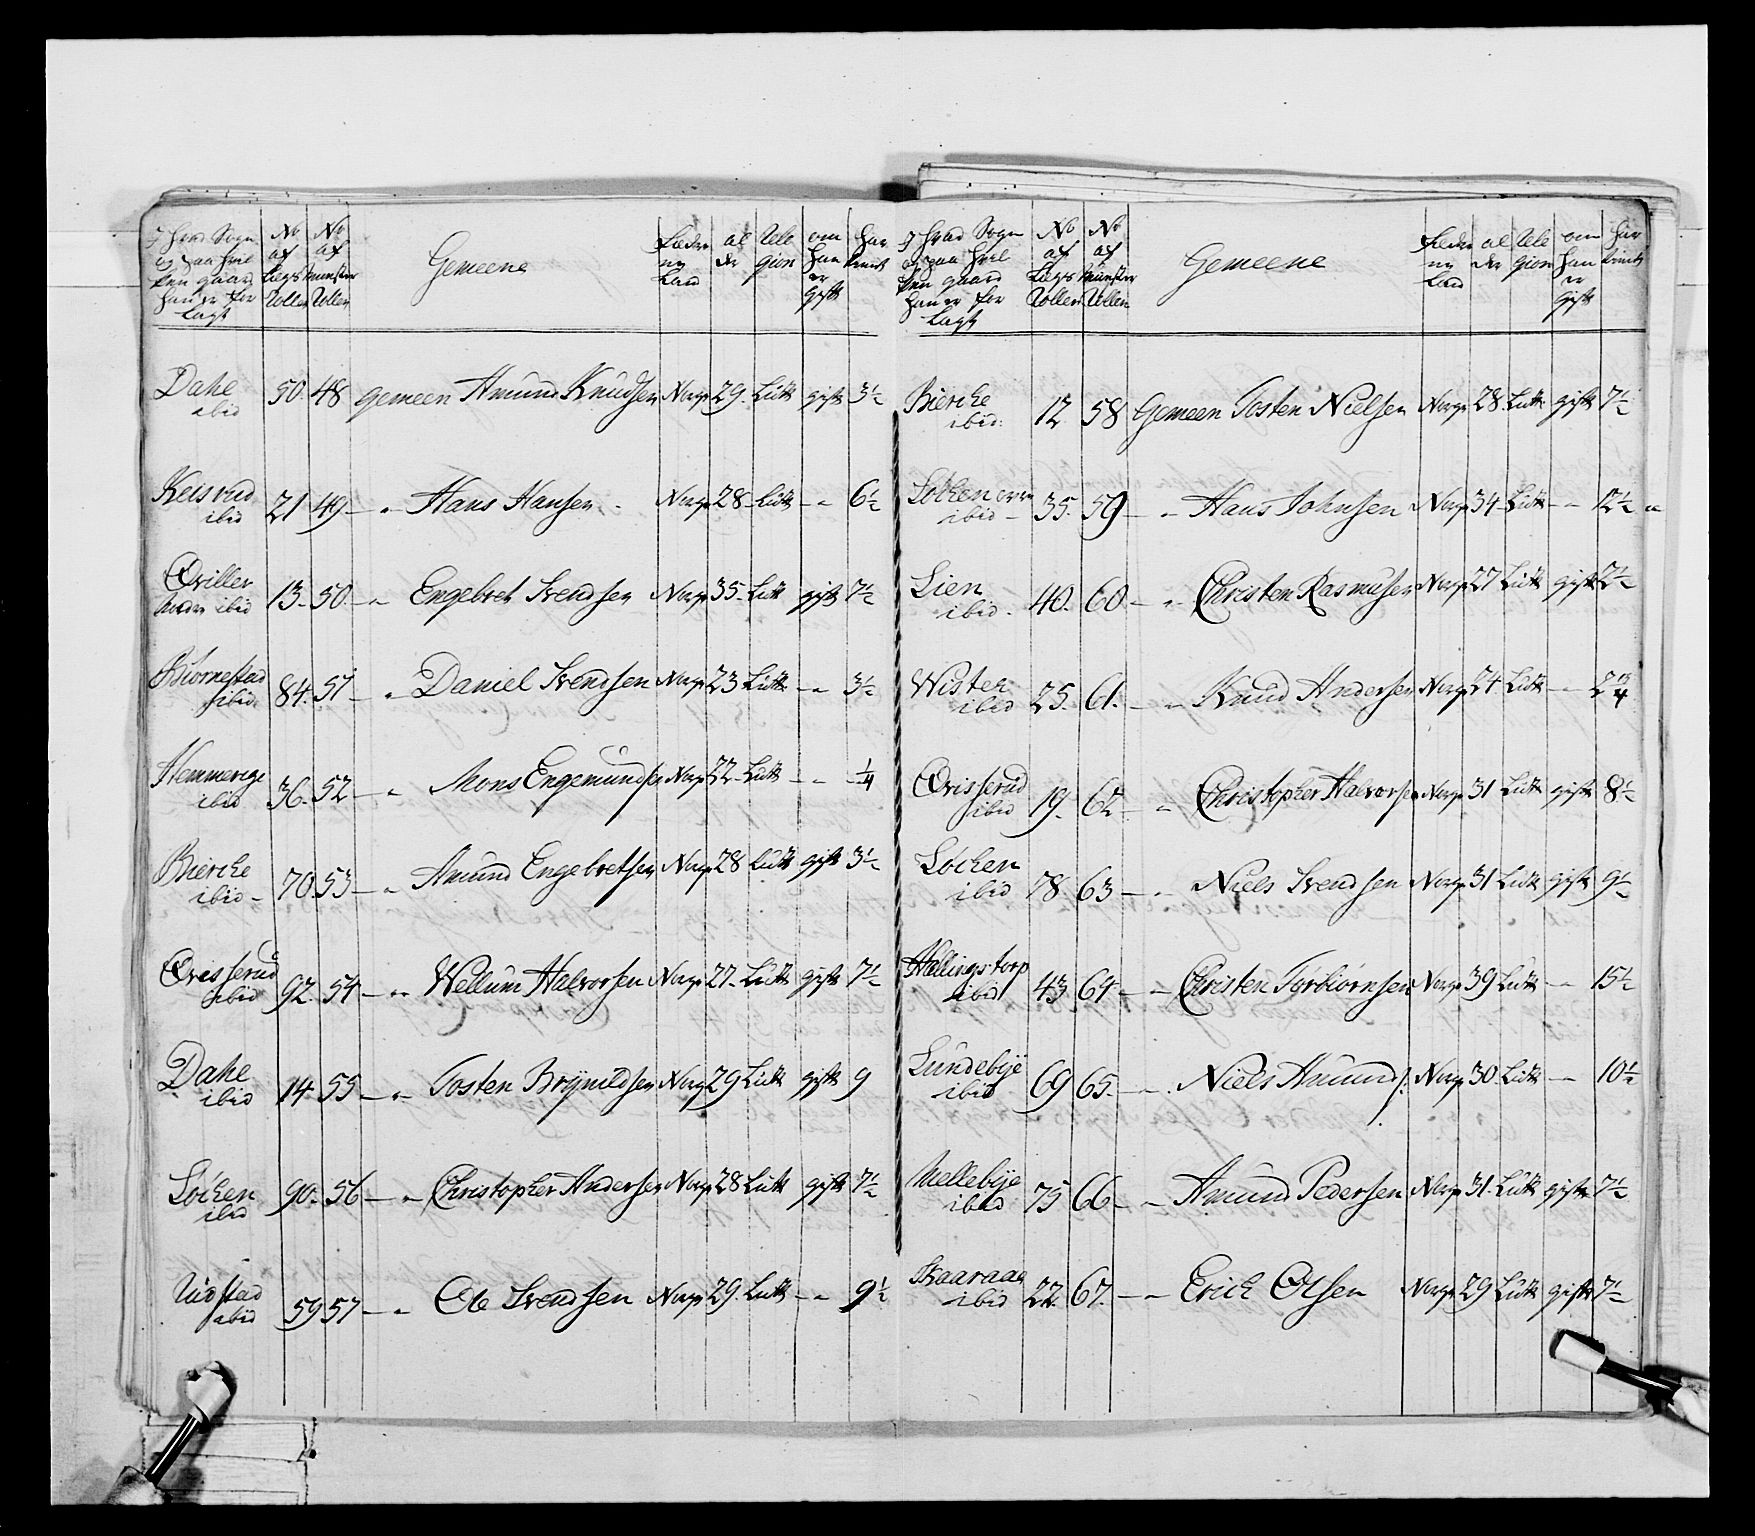 I hvad Sogn og paa hvilken gaard han er for lagt | No af Lægs Rollen | No af Munster Rollen | Gemeene | Fæderne Land | alder | Religion | om han er gift | har tient
Dahe ibid | 50 | 48 | Gemeen Amund Knudsen | Norge | 29 | Luth | gift | 3½
Keisrud ibid | 21 | 49 | - " - Hans Hansen | Norge | 28 | Luth | - " - | 6½
Qviller ibid | 13 | 50 | - " - Engebret Svendsen | Norge | 35 | Luth | gift | 7½
Biørnestad ibid | 84 | 51 | - " - Daniel Svendsen | Norge | 23 | Luth | - " - | 3½
Hemmerige ibid | 36 | 52 | - " - Mons Engemundsen | Norge | 22 | Luth | - " - | ¼
Biercke ibid | 70 | 53 | - " - Amund Engebretsen | Norge | 28 | Luth | gift | 3½
Qvisserud ibid | 92 | 54 | - " - Wellum Halvorsen | Norge | 27 | Luth | gift | 7½
Dahe ibid | 14 | 55 | - " - Tosten Brynildsen | Norge | 29 | Luth | gift | 9
Løchen ibid | 90 | 56 | - " - Christopher Andersen | Norge | 28 | Luth | gift | 7½
Rudstad ibid | 59 | 57 | - " - Ole Svendsen | Norge | 29 | Luth | - " - | 9½
I hvad Sogn og paa hvilken gaard han er for lagt | No af Lægs Rollen | No af Munster Rollen | Gemeene | Fæderne Land | alder | Religion | om han er gift | har tient
Biercke ibid | 12 | 58 | Gemeen Tosten Nielsen | Norge | 28 | Luth | gift | 7½
Løchen ibid | 35 | 59 | - " - Hans Johnsen | Norge | 34 | Luth | - " - | 12½
Lien ibid | 40 | 60 | - " - Christen Rasmusen | Norge | 27 | Luth | gift | 2½
Wister ibid | 25 | 61 | - " - Knud Andersen | Norge | 24 | Luth | - " - | 2¾
Qvisserud ibid | 19 | 62 | - " - Christopher Halvorsen | Norge | 31 | Luth | gift | 8½
Løchen ibid | 78 | 63 | - " - Niels Svendsen | Norge | 31 | Luth | gift | 9½
Hallingstorp ibid | 43 | 64 | - " - Christen Torbiørnsen | Norge | 39 | Luth | - " - | 15½
Lundebye ibid | 69 | 65 | - " - Niels Amunds: | Norge | 30 | Luth | - " - | 10½
Mellebye ibid | 75 | 66 | - " - Amund Pedersen | Norge | 31 | Luth | gift | 7½
Skaaraae ibid | 22 | 67 | - " - Erich Olsen | Norge | 29 | Luth | gift | 7½